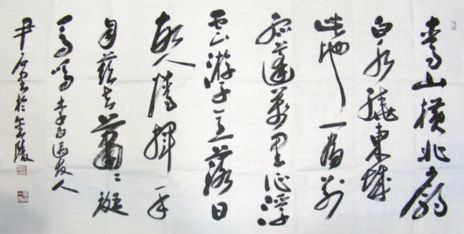 青山橫北郭
白水繞東城
此地一為別
孤蓬萬里征浮
雲游子意落日
故人情揮手
自茲去蕭〻班
馬鳴 李白送友人
於金陵